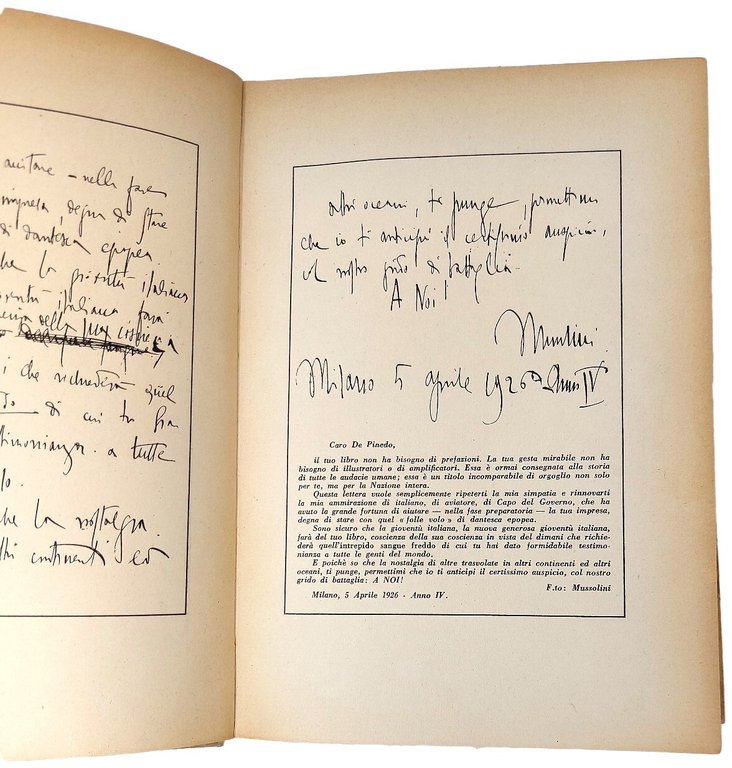 auitare – nella fase
impresa, degna di stare
di dantesca epopea.
che la gioventù italiana
gioventù italiana farà
della sua coscienza
i che richiederà quel
di cui tu hai
testimonianza a tutte
che la nostalgia
altri continenti ed
altri oceani, te punge, permettimi
che io ti anticipi il certissimo auspicio,
col nostro grido di battaglia.
A Noi!
Mussolini
Milano 5 aprile 1926 Anno IV
Caro De Pinedo,
il tuo libro non ha bisogno di prefazioni. La tua gesta mirabile non ha
bisogno di illustratori o di amplificatori. Essa è ormai consegnata alla storia
di tutte le audacie umane; essa è un titolo incomparabile di orgoglio non solo
per te, ma per la Nazione intera.
Questa lettera vuole semplicemente ripeterti la mia simpatia e rinnovarti
la mia ammirazione di italiano, di aviatore, di Capo del Governo, che ha
avuto la grande fortuna di aiutare — nella fase preparatoria — la tua impresa,
degna di stare con quel « folle volo » di dantesca epopea.
Sono sicuro che la gioventù italiana, la nuova generosa gioventù italiana,
farà del tuo libro, coscienza della sua coscienza in vista del dimani che richie-
derà quell'intrepido sangue freddo di cui tu hai dato formidabile testimo-
nianza a tutte le genti del mondo.
E poichè so che la nostalgia di altre trasvolate in altri continenti ed altri
oceani, ti punge, permettimi che io ti anticipi il certissimo auspicio, col nostro
grido di battaglia: A NOI!
F.to: Mussolini
Milano, 5 Aprile 1926 - Anno IV.